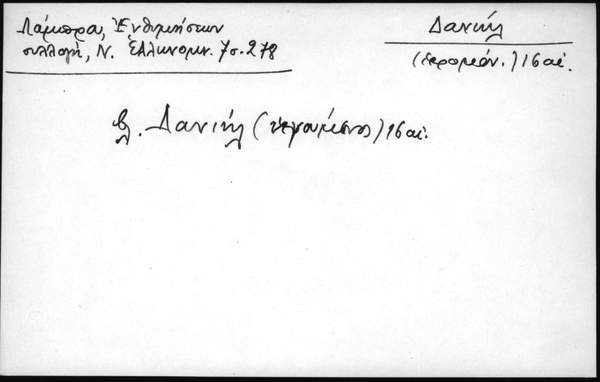 Λάμπρου, Ἐνθυμήσεων
συλλογή, Ν. Ἑλληνομν. 7σ. 278
Δανιήλ
(ἱερομόν.) 16 αἰ.
βλ. Δανιήλ (ἡγούμενος) 16 αἰ.